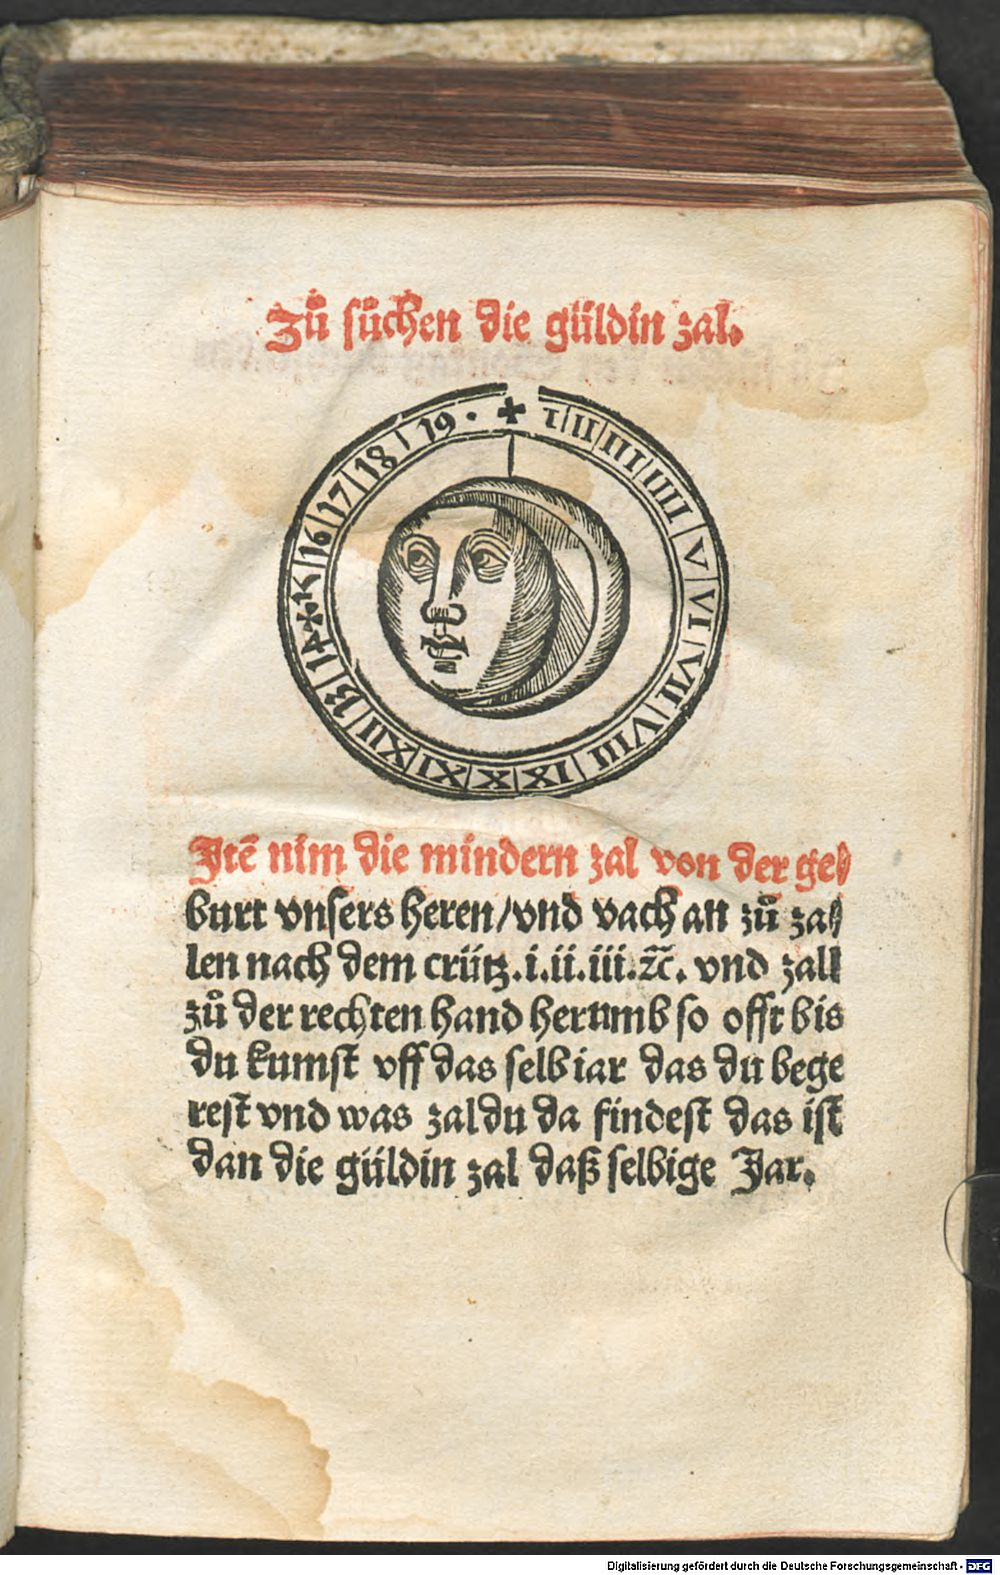 Zů sůchen die güldin zal.
✠ I II III IIII V VI VII VIII IX X XI XII 13 14 ✠ 15 16 17 18 19 ·
Itē nim die mindern zal von der ge⸗
burt vnsers heren/vnd vach an zů zal⸗
len nach dem crütz.i.ii.iii.ꝛc̄. vnd zall
zů der rechten hand herumb so offt bis
du kumst vff das selb iar das du bege
rest vnd was zal du da findest das ist
dan die güldin zal daß selbige Jar.
Digitalisierung gefördert durch die Deutsche Forschungsgemeinschaft - DFG